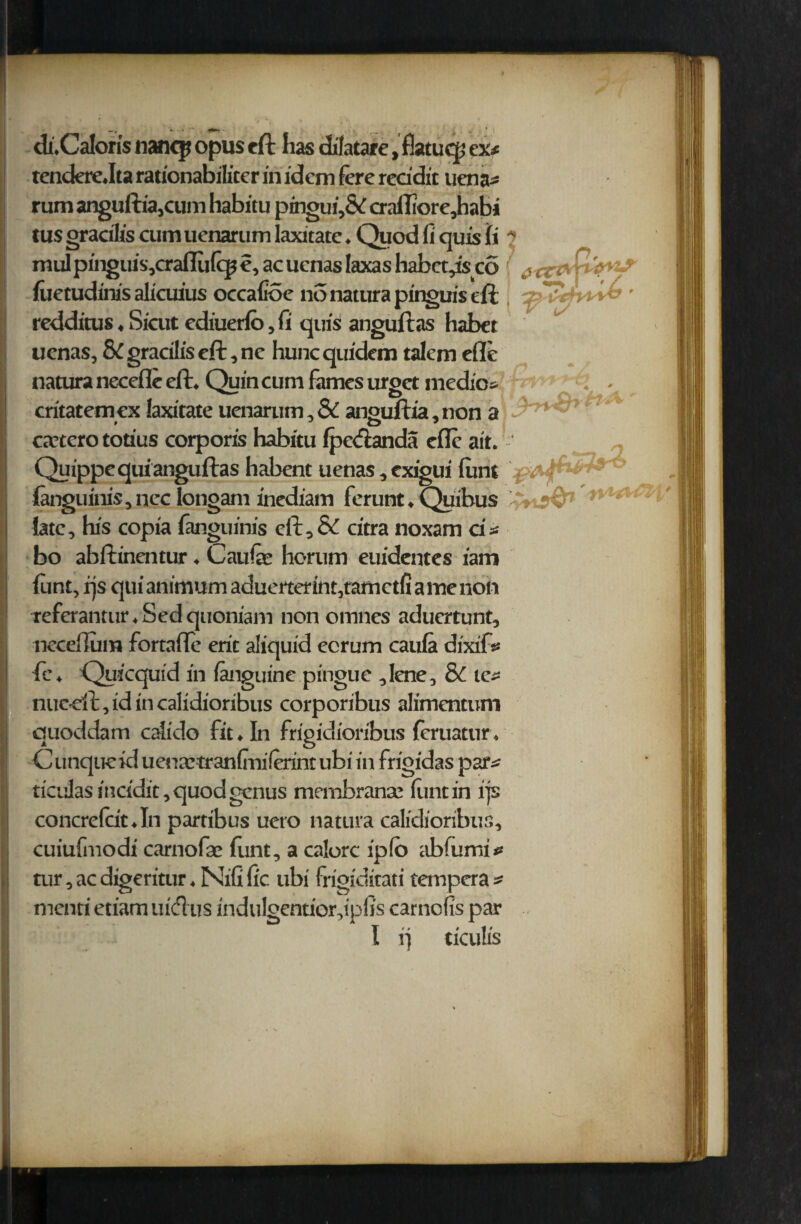 di.Caloris nanqꝫ opus eſt has dilatare, flatuqꝫ ex⸗
tendere.Ita rationabiliter in idem fere recidit uena⸗
rum anguſtia,cum habitu pingui,& craſſiore,habi
tus gracilis cum uenarum laxitate. Quod ſi quis ſi
mul pinguis,craſſuſqꝫ ē, ac uenas laxas habet,is cō
ſuetudinis alicuius occaſiōe nō natura pinguis eſt
redditus. Sicut ediuerſo, ſi quis anguſtas habet
uenas, & gracilis eſt, ne hunc quidem talem eſſe
natura neceſſe eſt. Quin cum fames urget medio⸗
critatem ex laxitate uenarum, & anguſtia, non a
cætero totius corporis habitu ſpectandā eſſe ait.
Quippe qui anguſtas habent uenas, exigui ſunt
ſanguinis, nec longam inediam ferunt. Quibus
late, his copia ſanguinis eſt, & citra noxam ci⸗
bo abſtinentur. Cauſæ horum euidentes iam
ſunt, ijs qui animum aduerterint,tametſi a me non
referantur. Sed quoniam non omnes aduertunt,
neceſſum fortaſſe erit aliquid eorum cauſa dixiſ⸗
ſe. Quicquid in ſanguine pingue, lene, & te⸗
nue eſt, id in calidioribus corporibus alimentum
quoddam calido fit. In frigidioribus ſeruatur.
Cunque id uenæ tranſmiſerint ubi in frigidas par⸗
ticulas incidit, quod genus membranæ ſunt in ijs
concreſcit. In partibus uero natura calidioribus,
cuiuſmodi carnoſæ ſunt, a calore ipſo abſumi⸗
tur, ac digeritur. Niſi ſic ubi frigiditati tempera⸗
menti etiam uictus indulgentior,ipſis carnoſis par
I ij ticulis